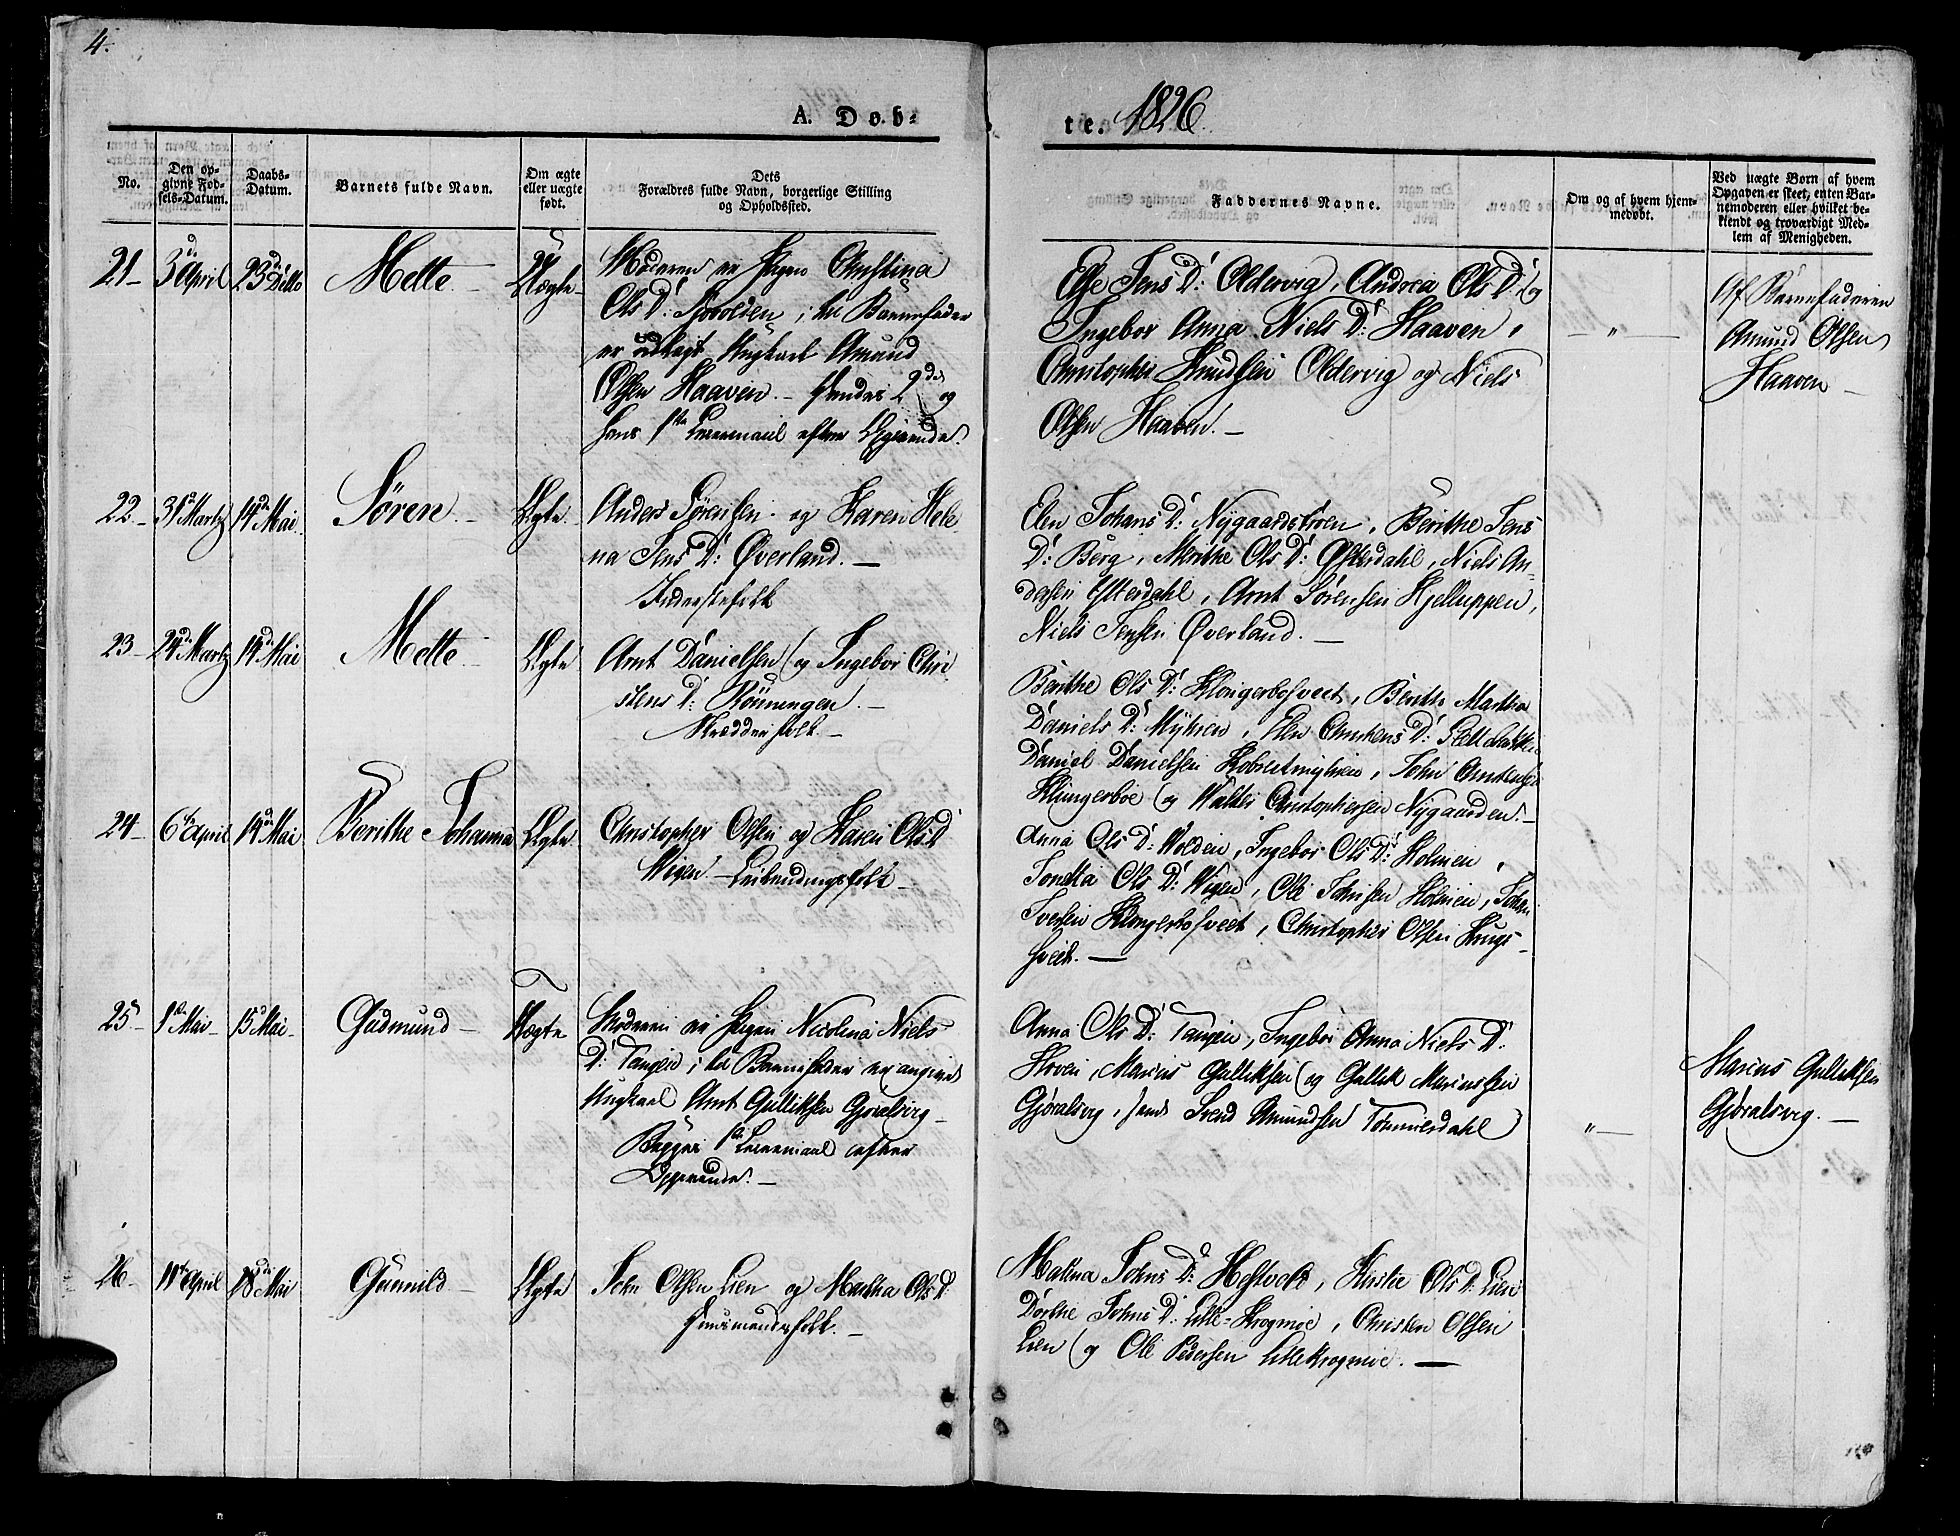 4.
A. Døb-
te. 1826.
No.
Den op-
givne Fød-
sels-Datum.
Daabs-
Datum.
Barnets fulde Navn.
Om ægte
eller uægte
født.
Dets
Forældres fulde Navn, borgerlige Stilling
og Opholdssted.
Faddernes Navne.
Om og af hvem hjem-
medøbt.
Ved uægte Børn af hvem
Opgaven er skeet, enten Bar-
nemoderen eller hvilket be-
kiendt og troværdigt Med-
lem af Menigheden.
21- 3d April 23d Ditto Mette - Uægte -
Moderen er Pigen Christina
Ols D: ; til Barnefader
er udlagt Ungkarl Amund
Olsen Haaven. - Hendes 2det og
hans 1ste Leiermaal efter Opgivende.
Else Jens D: Oldervig, Andrea Ols D: og
Ingebor Anna Niels D: Haaven,
Christopher Knudsen Oldervig og Niels
Olsen Haaven. -
- " -
Af Barnefaderen
Amund Olsen
Haaven -
22- 31 Martz 14d Mai. Søren. - Ægte.
Anders Sørensen og Karen Hele
na Jens D: Øverland. -
Inderstefolk
Elen Johans D: Nygaardstrøen, Berithe Jens
D: Berg, Merithe Ols D: Ytterdahl, Niels An-
dersen Ytterdahl, Arnt Sørensen Hjelluppen,
Niels Jensen Øverland. -
23- 24d Martz 14d Mai Mette - Ægte
Arnt Danielsen og Ingebor Chri
stens D: Rønningen. -
Skrædderfolk -
Berithe Ols D: Klongerbosveet, Berithe Martha
Daniels D: Myhren, Elen Christens D:
Daniel Danielsen , John Arntsen
Klungerboe og Walter Christophersen Nygaarden. -
24- 6te April 14d Mai Berithe Johanna Ægte
Christopher Olsen og Karen Ols D:
Wigen - Leilendingsfolk -
Anna Ols D: Wolden, Ingebor Ols D: Holmen,
Jonetta Ols D: Wigen, Ole Johnsen Holmen, John
Iversen Klongerbosveet, Christopher Olsen Krogs-
sveet. -
25- 1ste Mai - 15d Mai - Gudmund - Uægte
Moderen er Pigen Nicolina Niels
D: Tangen; til Barnefader er angivet
Ungkarl Arnt Gulliksen Gjøralsvig -
Begges 1ste Leiermaal efter
Opgivende. -
Anna Ols D: Tangen, Ingebor Anna Niels D:
Hoven, Marius Gulliksen og Gullik Mariussen
Gjøralsvig, samt Svend Amundsen Tømmerdahl
" -
Marius Gulliksen
Gjøralsvig. -
26- 11te April 18d Mai Gunnild - Ægte
John Olsen Lien og Martha Ols D:
Huusmandsfolk. -
Malena Johns D: , Kirstie Ols D: Lien
Dorthe Johns D: Lille-Krogmoe, Christen Olsen
Lien og Ole Pedersen Lillekrogmoe. -